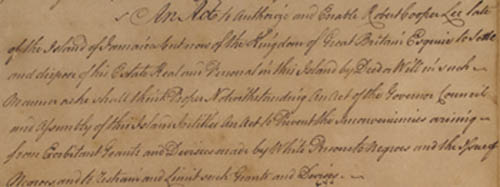 An Act to Authorize and Enable Robert Cooper Lee late
of the Island of Jamaica but now of the Kingdom of Great Britain Esquire to Settle
and dispose of his Estate Real and Personal in this Island by Deed or Will in such
Manner as he shall think Proper Notwithstanding An Act of the Governor Council
and Assembly of this Island Intitled An Act to Prevent the Inconveniencies arising
from Exorbitant Grants and Devises made by White Persons to Negroes and the Issue of
Negroes and to Restrain and Limit such Grants and Devises